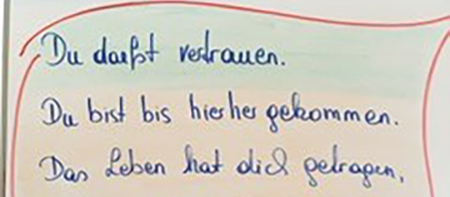 Du darfst vertrauen.
Du bist bis hierher gekommen.
Das Leben hat dich getragen,